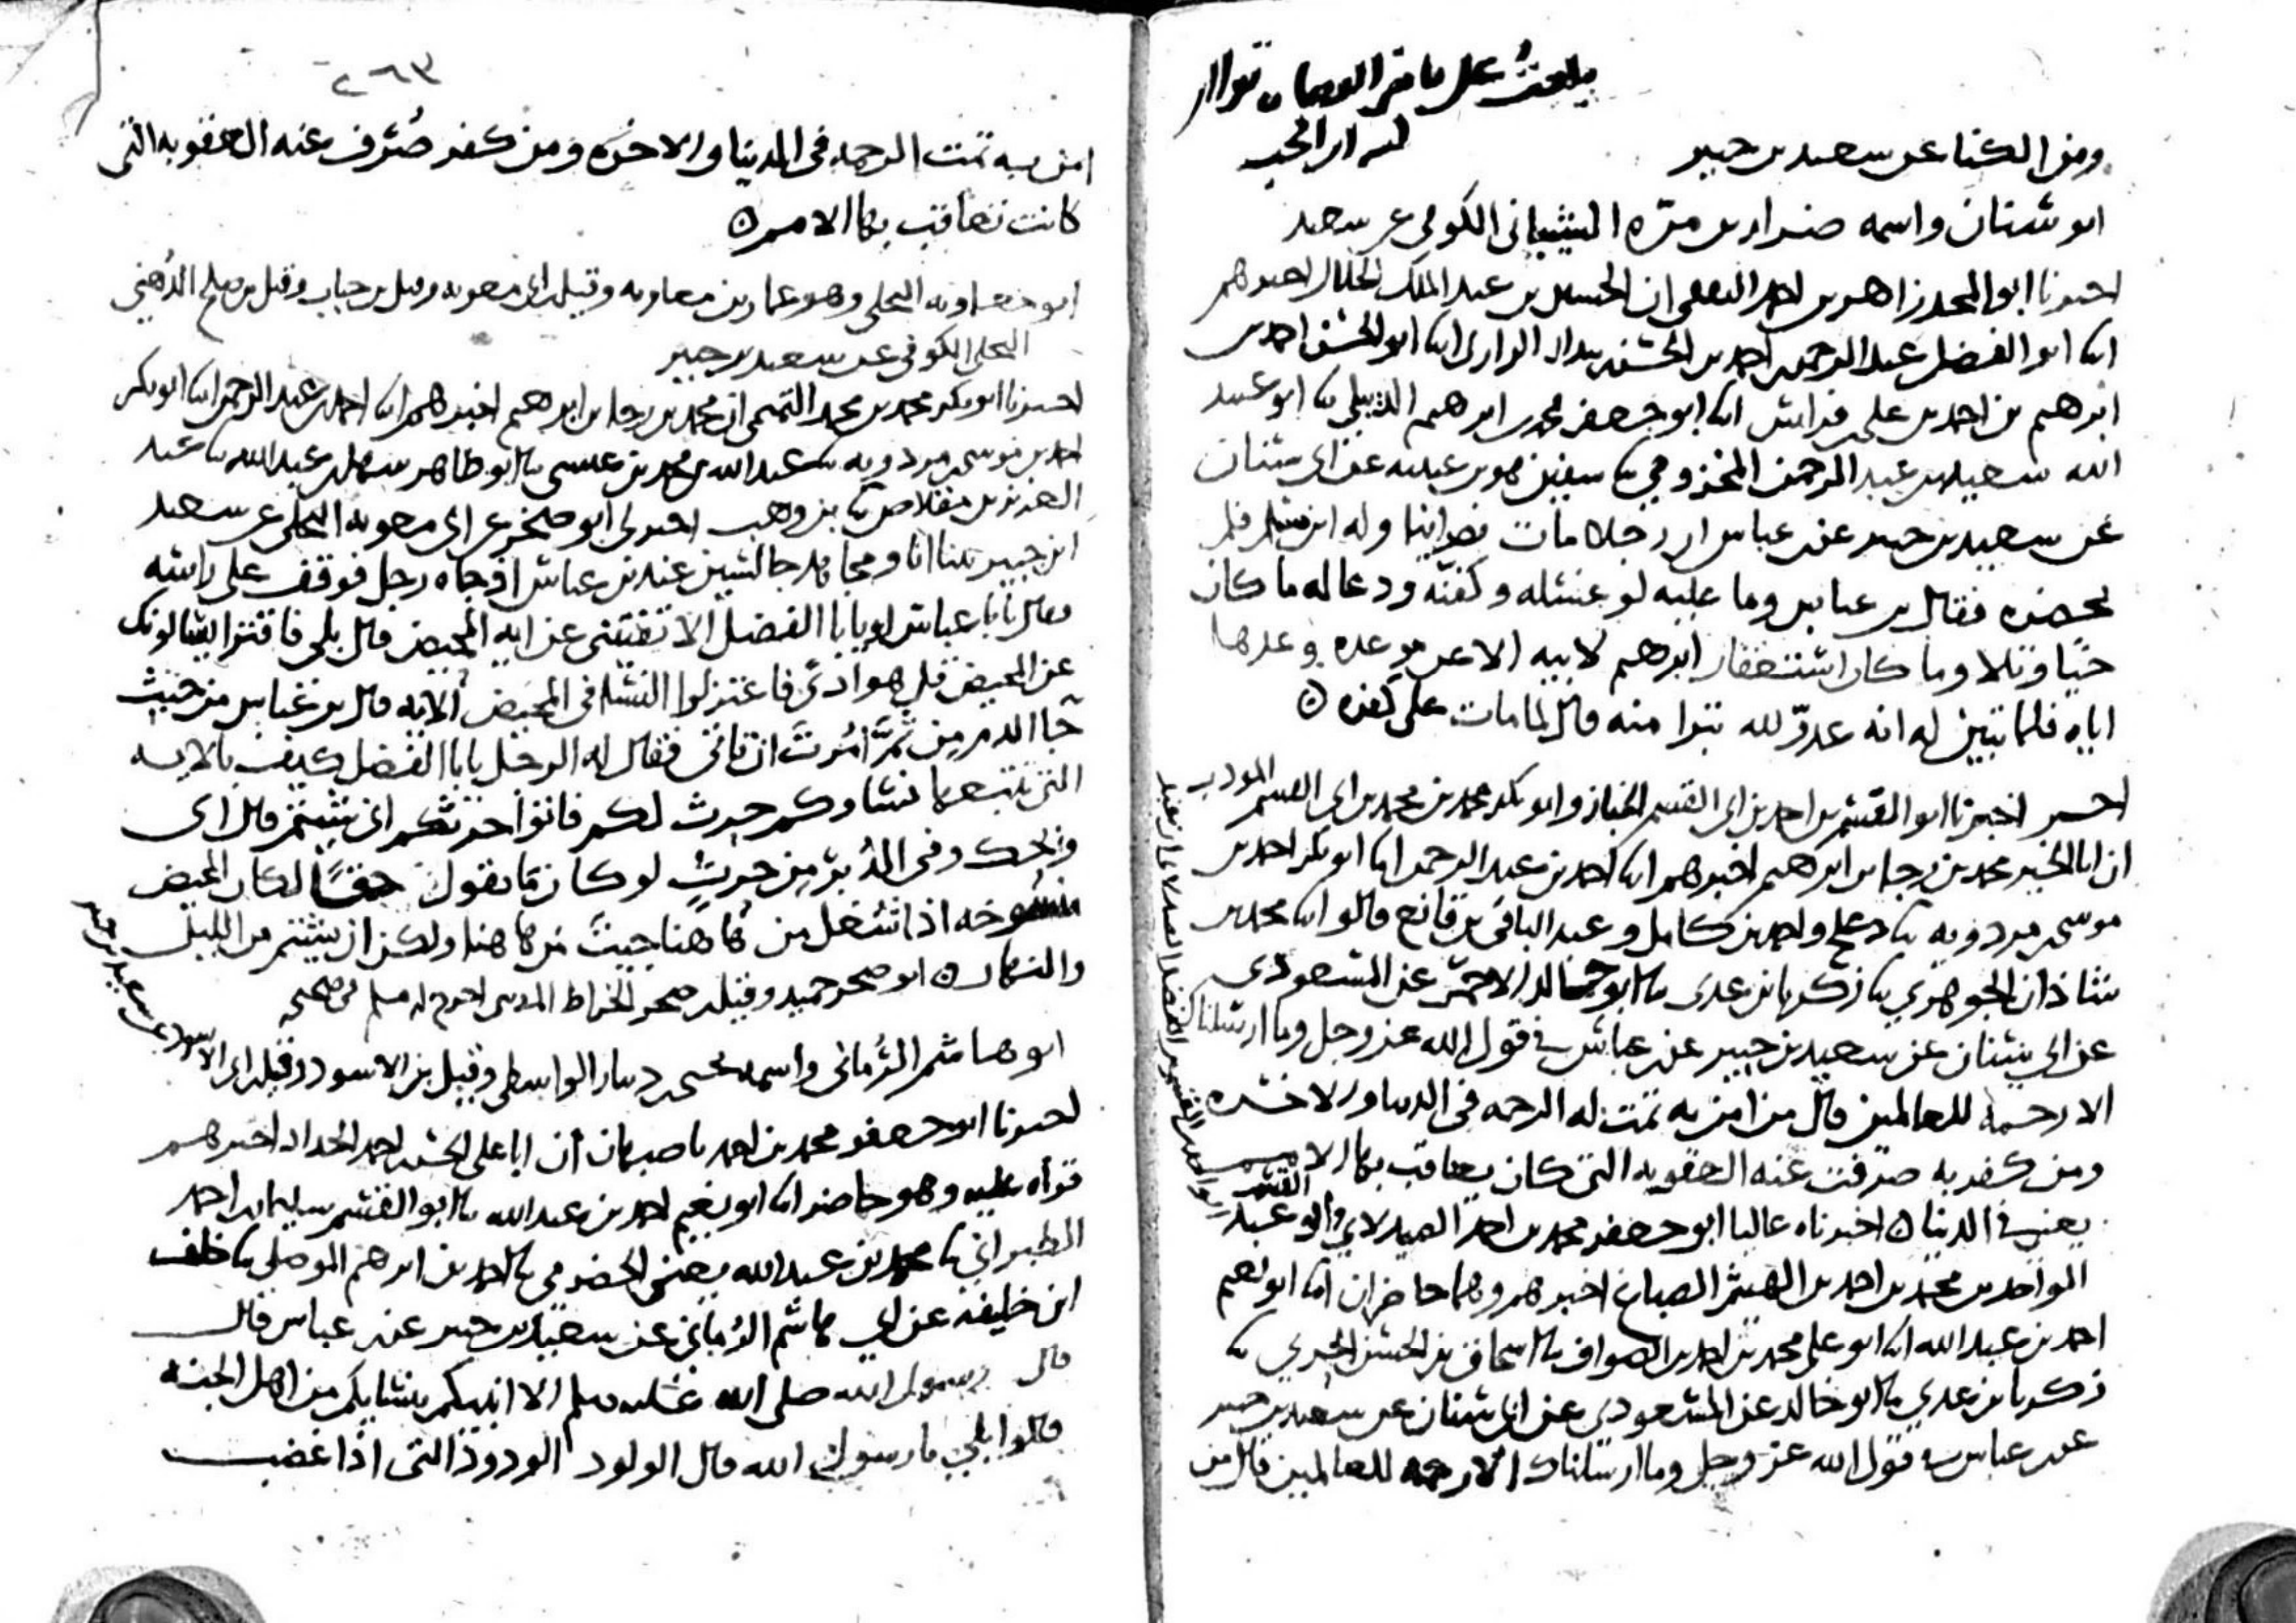 ومن الكنا عن سعيد بن جبير
ابو سنان واسمه ضرار بن مرّه الشيباني الكوفي عن سعيد
اخبرنا ابو المجد زاهر بن احمد الثقفي ان الحسين بن عبد الملك الخلال اخبرهم
ابنا ابو الفضل عبد الرحمن بن احمد بن الحسن بن بندار الرازي ابنا ابو الحسن احمد بن
ابرهيم بن احمد بن علي بن فراس ابنا ابو جعفر محمد بن ابرهيم الديبلي ثنا ابو عبيد
الله سعيد بن عبد الرحمن المخزومي ثنا سفين هو بن عيينه عن ابي سنان
عن سعيد بن جبير عن بن عباس ان رجلا مات نصرانيا وله ابن مسلم فلم
يحضره فقال بن عباس وما عليه لو غسله وكفنه ودعا له ما كان
حيا وتلا وما كان استغفار ابرهيم لابيه الا عن موعده وعدها
اياه فلما تبين له انه عدوّ لله تبرا منه قال لما مات على كفره
اخبرنا ابو القسم بن احمد بن ابي القسم الخباز وابو بكر محمد بن محمد بن ابي القسم المودب
ان ابا الخير محمد بن رجا بن ابرهيم اخبرهم ابنا احمد بن عبد الرحمن ابنا ابو بكر احمد بن
موسى بن مردويه ثنا دعلج واحمد بن كامل وعبد الباقي بن قانع قالوا ابنا محمد بن
شاذان الجوهري ثنا زكريا بن عدي ثنا ابو خالد الاحمر عن المسعودي
عن ابي سنان عن سعيد بن جبير عن بن عباس في قول الله عز وجل وما ارسلناك
الا رحمة للعالمين قال من امن به تمت له الرحمه في الدنيا والاخره
ومن كفر به صرفت عنه العقوبه التي كان يعاقب بها الامم
يعني في الدنيا اخبرناه عاليا ابو جعفر محمد بن احمد الصيدلاني وابو القسم عبد
الواحد بن محمد بن احمد بن الهيثم الصباغ اخبرهم وهما حاضران ابنا ابو نعيم
احمد بن عبد الله ابنا ابو علي محمد بن احمد بن الصواف ثنا اسحاق بن الحسن الحربي ثنا
زكريا بن عدي ثنا ابو خالد عن المسعودي عن ابي سنان عن سعيد بن جبير
عن بن عباس في قول الله عز وجل وما ارسلناك الا رحمه للعالمين قال من
٢٦٣
امن به تمت الرحمه في الدنيا والاخره ومن كفر صُرف عنه العقوبه التي
كانت تعاقب بها الامم
ابو معاويه البجلي وهو عمار بن معاويه وقيل بن ابي معويه وقيل بن حباب وقيل بن صلح الدُهني
البجلي الكوفي عن سعيد بن جبير
اخبرنا ابو بكر محمد بن محمد التميمي ان محمد بن رجا بن ابرهيم اخبرهم ابنا احمد بن عبد الرحمن ابنا ابو بكر
احمد بن موسى بن مردويه ثنا عبد الله بن محمد بن عيسى ثنا ابو طاهر سهل بن عبد الله ثنا عبد
العزيز بن مقلاص ثنا بن وهب اخبرني ابو صخر عن ابي معويه البجلي عن سعيد
ابن جبير بينا انا ومجاهد جالسين عند بن عباس اذ جاه رجل فوقف على راسه
فقال يابا عباس او يابا الفضل الا تفتيني عن ايه المحيض قال بلى فاقترا يسالونك
عن المحيض قل هو اذًى فاعتزلوا النسا في المحيض الايه قال بن عباس من حيث
جا الدم من ثَمَّ اُمِرتَ ان تاتي فقال له الرجل يابا الفضل كيف بالايه
التي تتبعها نساوكم حرث لكم فاتوا حرثكم انى شيتم قال اي
ويحك وفي الدُبر من حرثٍ لو كان ما تقول حقًا لكان المحيض
منسوخه اذا شغل من هاهنا جيتَ من هاهنا ولكن انى شيتم من الليل
والنهار ابو صخر حميد وقيل بن صخر الخراط المدني اخرج له مسلم في صحيحه
ابو هاشم الرُماني واسمه يحيى بن دينار الواسطي وقيل بن الاسود وقيل بن ابي الاسود عن سعيد بن جبير
اخبرنا ابو جعفر محمد بن احمد باصبهان ان ابا علي الحسن بن احمد الحداد اخبرهم
قراه عليه وهو حاضر ابنا ابو نعيم احمد بن عبد الله ثنا ابو القسم سليمان بن احمد
الطبراني ثنا محمد بن عبد الله يعني الحضرمي ثنا احمد بن ابرهيم الموصلي ثنا خلف
ابن خليفه عن ابي هاشم الرُماني عن سعيد بن جبير عن بن عباس قال
قال رسول الله صلى الله عليه وسلم الا انبيكم بنسايكم من اهل الجنه
قالوا بلى يا رسول الله قال الولود الودود التي اذا غضب